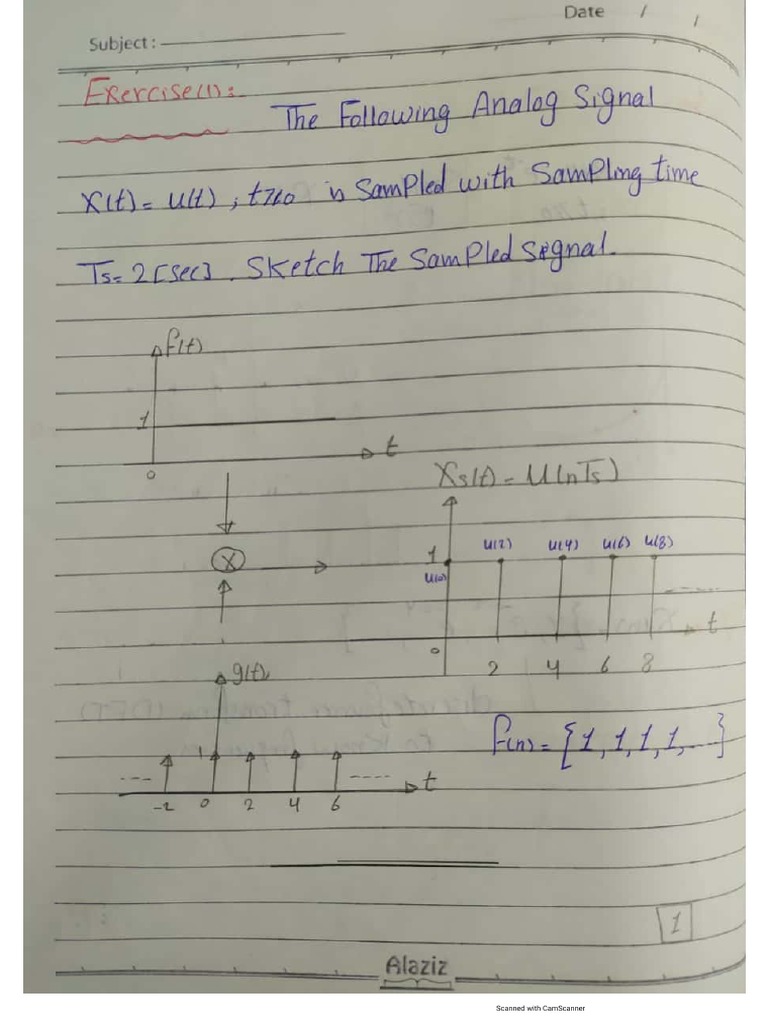 Date / /
Subject :
Exercise(1):
The Following Analog Signal
X(t) = U(t) ; t≥0 is Sampled with Sampling time
Ts = 2 [sec] . Sketch The Sampled signal.
f(t)
1
t
0
Xs(t) = U(nTs)
X
1 U(2) U(4) U(6) U(8)
U(0)
t
0
2 4 6 8
g(t)
f(n) = {1, 1, 1, 1, ...}
1
---- ---- t
-2 0 2 4 6
1
Alaziz
Scanned with CamScanner